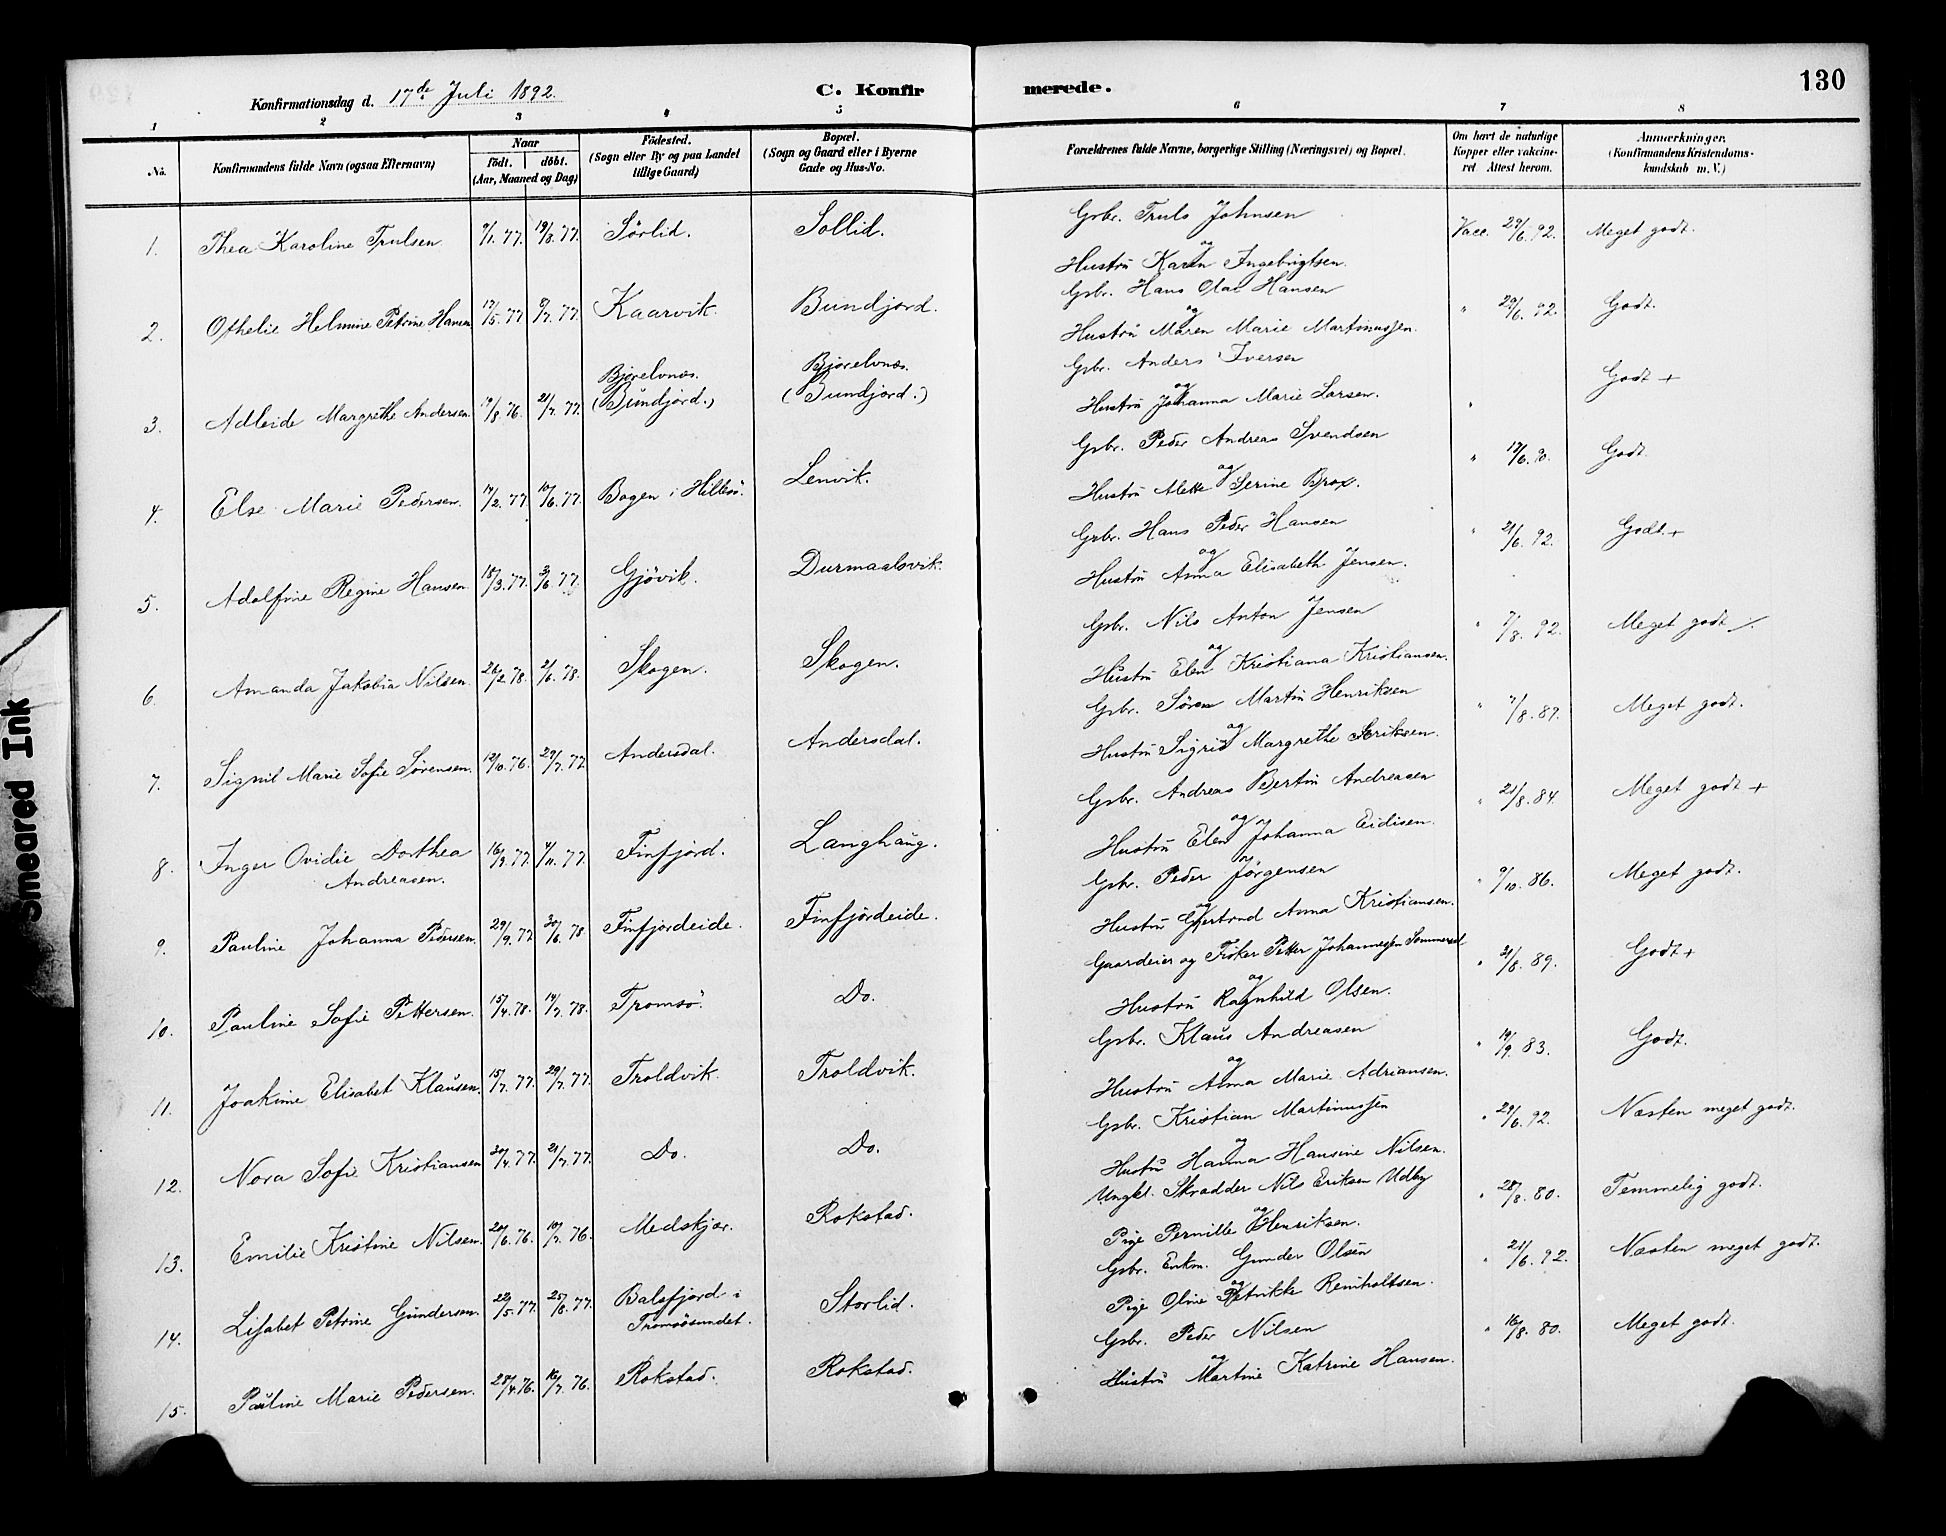 130
Konfirmationsdag d. 17de Juli 1892.
C. Konfirmerede.
1 2 3 4 5 6 7 8
No.
Konfirmandens fulde Navn (ogsaa Efternavn)
Naar
födt. döbt.
(Aar, Maaned og Dag)
Födested.
(Sogn eller By og paa Landet
tillige Gaard)
Bopæl.
(Sogn og Gaard eller i Byerne
Gade og Hus-No.
Forældrenes fulde Navne, borgerlige Stilling (Næringsvei) og Bopæl.
Om havt de naturlige
Kopper eller vakcine-
ret Attest herom.
Anmærkninger.
(Konfirmandens Kristendoms-
kundskab m. V.)
1. Thea Karoline Trulsen 9/1. 77. 19/8. 77. Sørlid. Sollid. Gbr. Truls Johnsen
og
Hustru Karen Ingebrigtsen. Vacc. 29/6. 92. Meget godt.
2. Othelie Helmine Petrine Hansen 17/5. 77 9/7. 77. Kaarvik. Bundjord. Gbr. Hans Olai Hansen
og
Hustru Maren Marie Martinussen. " 29/6. 92. Godt.
3. Adleide Margrethe Andersen 19/8. 76. 21/7. 77. Bjorelvnæs.
(Bundjord.) Bjorelvnæs.
(Bundjord.) Gbr. Anders Iversen
og
Hustru Johanna Marie Larsen. " Godt +
4. Else Marie Pedersen. 14/2. 77 10/6. 77. Bogen i Hillesö. Lenvik. Gbr. Peder Andreas Svendsen
og
Hustru Alette Serine Brox. " 13/6. 90. Godt.
5. Adolfine Regine Hansen 18/3. 77. 3/6. 77. Gjövik. Durmaalsvik. Gbr. Hans Peder Hansen
og
Hustru Anna Elisabeth Jensen. " 21/6. 92. Godt +
6. Amanda Jakobia Nilsen 26/2. 78. 2/6. 78. Skogen. Skogen. Gbr. Nils Anton Jensen
og
Hustru Elen Kristiana Kristiansen. " 7/8. 92. Meget godt
7. Signil Marie Sofie Sørensen. 12/10. 76. 29/7. 77 Andersdal. Andersdal. Gbr. Søren Martin Henriksen
og
Hustru Sigrid Margrethe Eriksen. " 7/8. 87. Meget godt.
8. Inger Ovidie Dorthea
Andreasen. 16/9. 77. 4/11. 77. Finfjord. Langhaug. Gbr. Andreas Bertin Andreasen
og
Hustru Elen Johanna Eidisen. " 21/8. 84. Meget godt +
9. Pauline Johanna Pedersen. 29/9. 77 30/6. 78 Finfjordeide. Finfjordeide. Gbr. Peder Jörgensen
og
Hustru Gjertrud Anna Kristiansen. " 9/10. 86. Meget godt.
10. Pauline Sofie Pettersen. 15/4. 78. 14/7. 78. Tromsö. Do. Gaardeier og Fisker Petter Johannessen Sommersel
og
Hustru Ragnhild Olsen. " 21/8. 89. Godt +
11. Joakime Elisabet Klausen. 15/7. 77. 29/7. 77. Troldvik. Troldvik. Gbr. Klaus Andreasen
og
Hustru Anna Marie Adriansen. " 19/9. 83. Godt.
12. Nora Sofie Kristiansen 30/4. 77. 21/7. 77. Do. Do. Gbr. Kristian Martinussen
og
Hustru Hanna Hansine Nilsen. " 29/6. 92. Næsten meget godt.
13. Emilie Kristine Nilsen. 20/6. 76. 10/7. 76. Medskjær. Rokstad. Ungkl. Skrædder Nils Eriksen Udby
og
Pige Pernille Henriksen. " 28/8. 80. Temmelig godt.
14. Lisabet Petrine Gundersen. 22/5. 77. 25/8. 77. Balsfjord i
Tromsösundet. Storlid. Gbr. Enkm. Gunder Olsen
og
Pige Oline Petrikke Reinholtsen. " 21/6. 92. Næsten meget godt.
15. Pauline Marie Pedersen. 28/4. 76. 16/7. 76. Rokstad. Rokstad. Gbr. Peder Nilsen
og
Hustru Martine Katrine Hansen. " 16/8. 80. Meget godt.
Smeared Ink